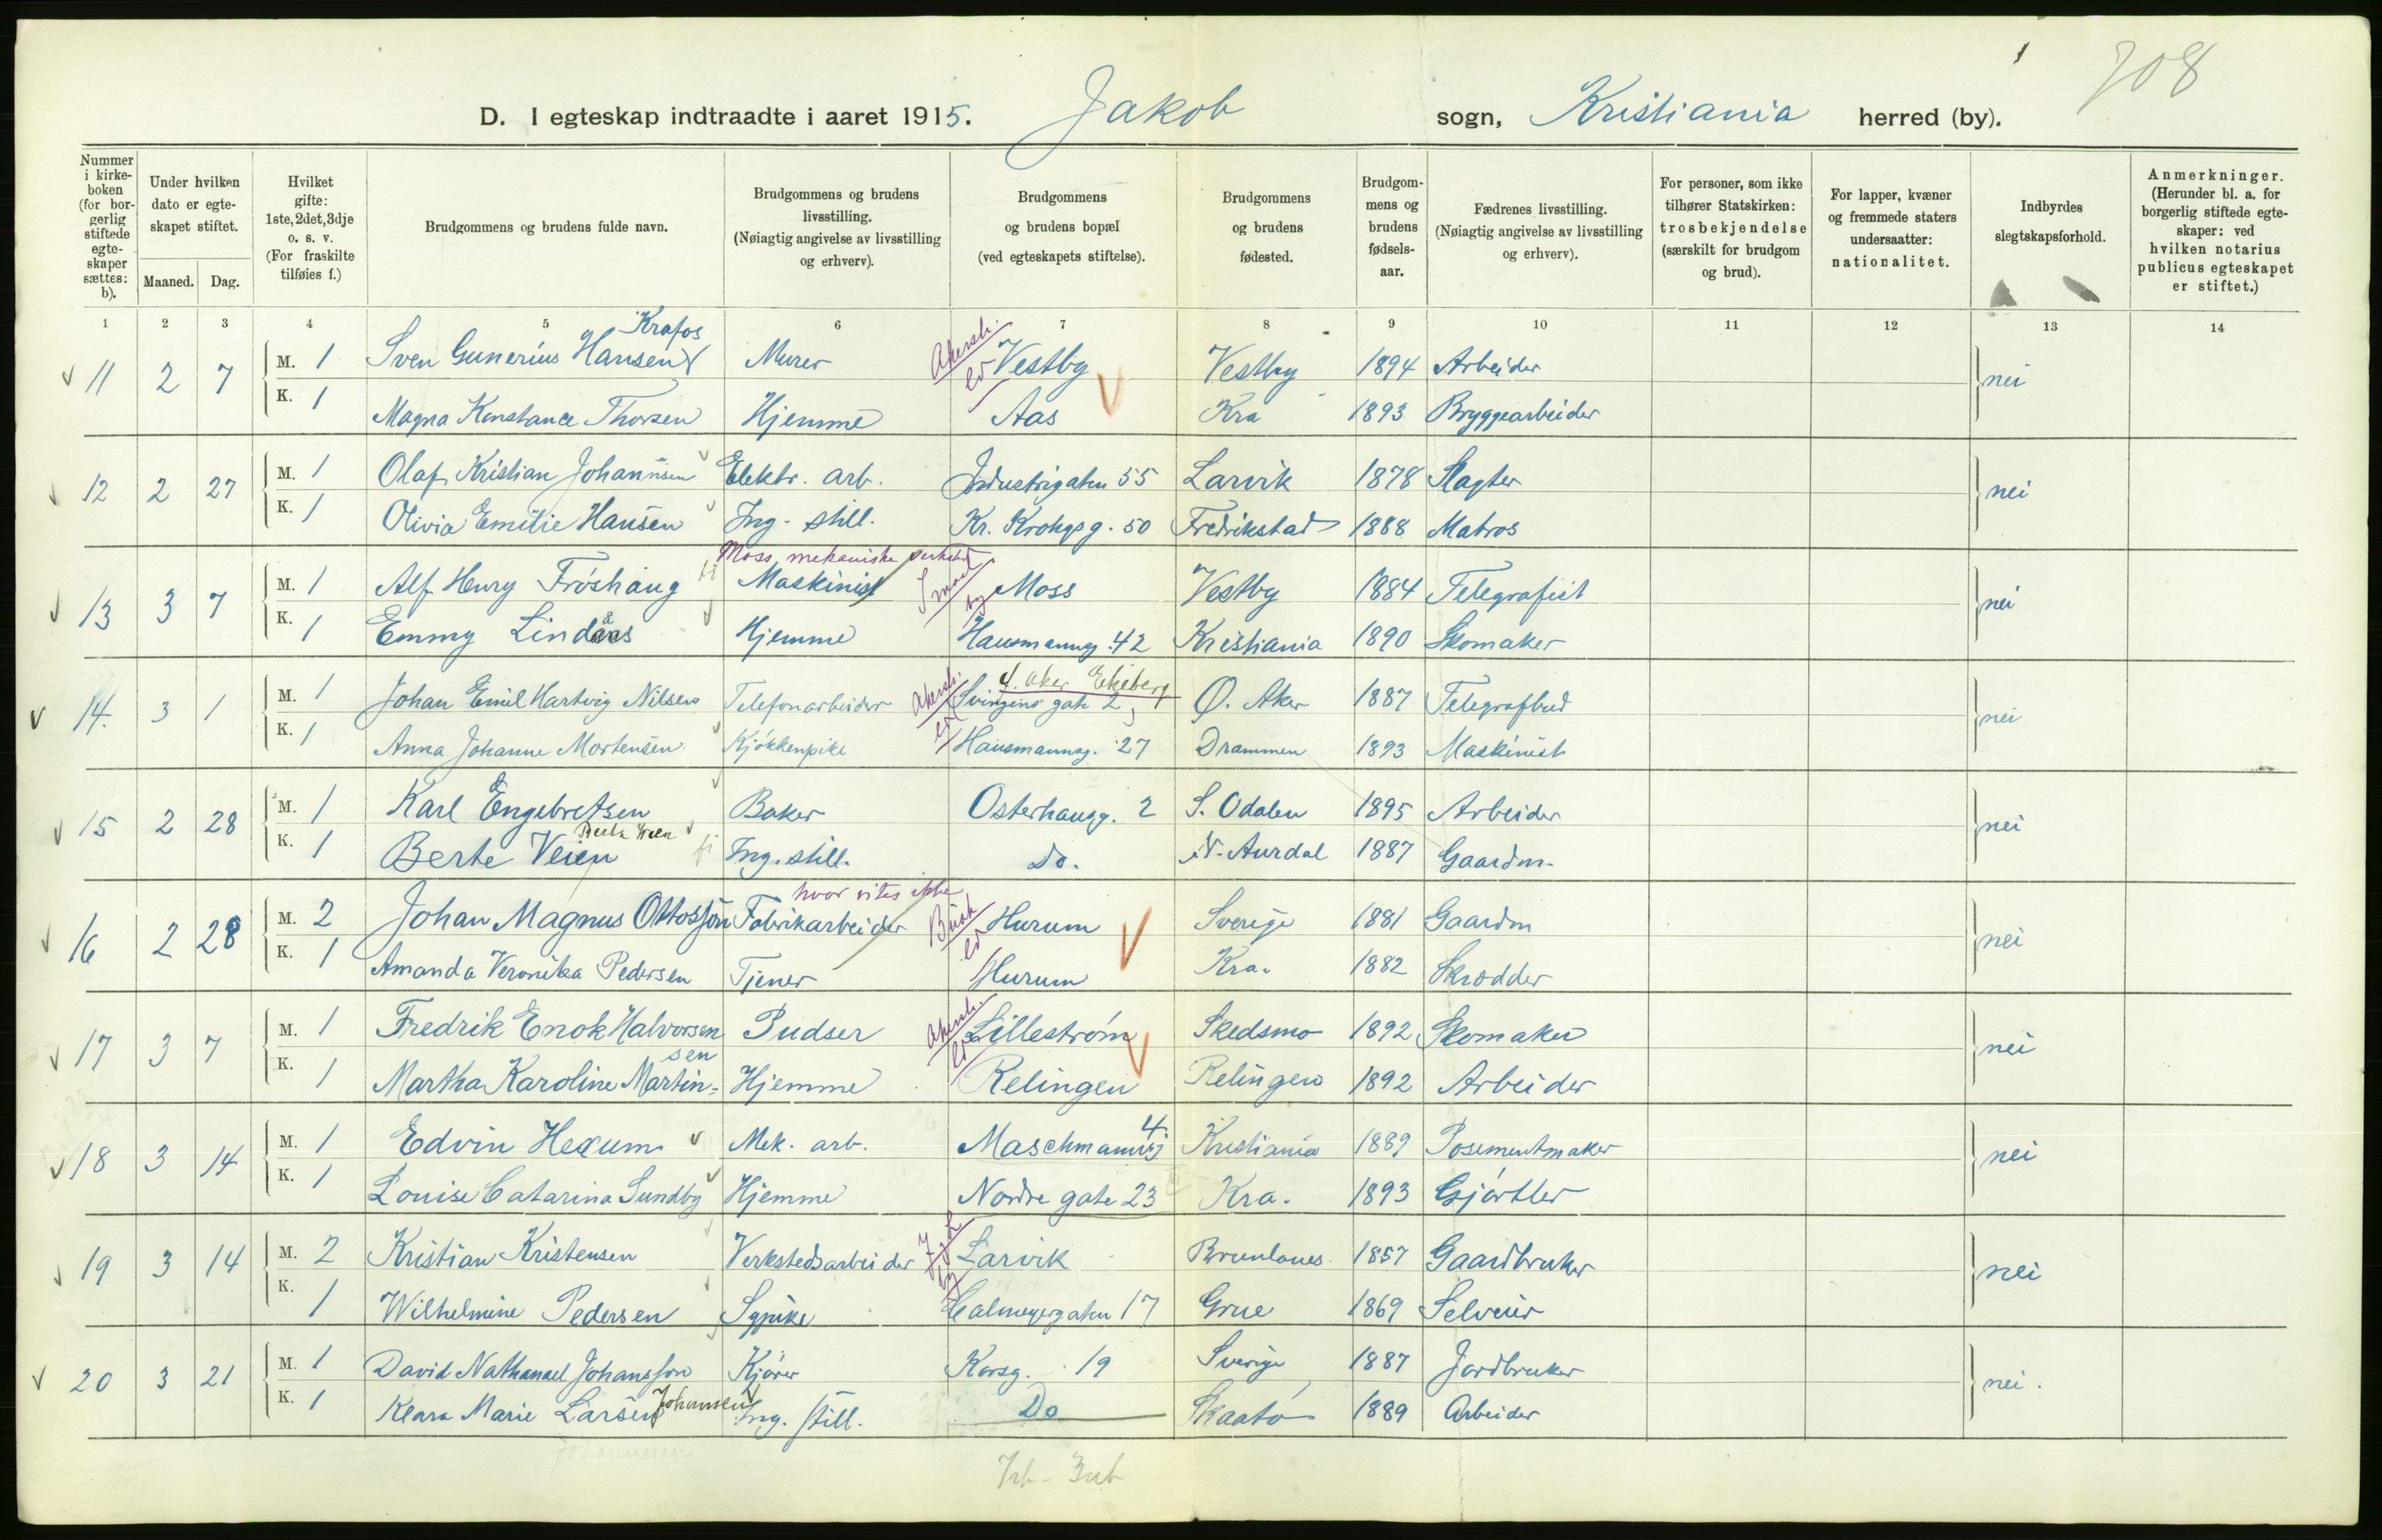 708
D. I egteskap indtraadte i aaret 1915. Jakob sogn, Kristiania herred (by).
Nummer i kirkeboken (for borgerlig stiftede egteskaper sættes: b).
Under hvilken dato er egteskapet stiftet.
Maaned. Dag.
Hvilket gifte: 1ste, 2det, 3dje o. s. v. (For fraskilte tilføies f.)
Brudgommens og brudens fulde navn.
Brudgommens og brudens livsstilling. (Nøiagtig angivelse av livsstilling og erhverv).
Brudgommens og brudens bopæl (ved egteskapets stiftelse).
Brudgommens og brudens fødested.
Brudgommens og brudens fødselsaar.
Fædrenes livsstilling. (Nøiagtig angivelse av livsstilling og erhverv).
For personer, som ikke tilhører Statskirken: trosbekjendelse (særskilt for brudgom og brud).
For lapper, kvæner og fremmede staters undersaatter: nationalitet.
Indbyrdes slegtskapsforhold.
Anmerkninger. (Herunder bl. a. for borgerlig stiftede egteskaper: ved hvilken notarius publicus egteskapet er stiftet.)
1 2 3 4 5 6 7 8 9 10 11 12 13 14
Krafos
11 2 7 M. 1 Sven Gunerius Hansen Murer Akersh. Vestby Vestby 1894 Arbeider nei
K. 1 Magna Konstance Thorsen Hjemme Aas Kra 1893 Bryggearbeider
12 2 27 M. 1 Olaf Kristian Johannsen Elektr. arb. Industrigaten 55 Larvik 1878 Slagter nei
K. 1 Olivia Emilie Hansen Ing. still. Kr. Krohgs g. 50 Fredrikstad 1888 Matros
Moss mekaniske verksted
13 3 7 M. 1 Alf Henry Fröshaug Maskinist Moss Vestby 1884 Telegrafist nei
K. 1 Emmy Lindaas Hjemme Hausmannsg. 42 Kristiania 1890 Skomaker
Aker Ekeberg
14. 3 1 M. 1 Johan Emil Hartvig Nilsen Telefonarbeider Akersh. Svingens gate 2 Ø. Aker 1887 Telegrafbud nei
K. 1 Anna Johanne Mortensen Kjökkenpike Hausmannsg. 27 Drammen 1893 Maskinist
15 2 28 M. 1 Karl Engebretsen Baker Osterhausg. 2 S. Odalen 1895 Arbeider nei
K. 1 Berte Veien Ing. still. Do. N. Aurdal 1887 Gaardm.
hvor vites ikke
16 2 28 M. 2 Johan Magnus Ottosson Fabrikarbeider Busk Hurum Sverige 1881 Gaardm nei
K. 1 Amanda Veronika Pedersen Tjener Hurum Kra. 1882 Skrædder
17 3 7 M. 1 Fredrik Enok Halvorsen Pudser Akersh. Lilleström Skedsmo 1892 Skomaker nei
K. 1 Martha Karoline Martin=sen Hjemme Relingen Relingen 1892 Arbeider
18 3 14 M. 1 Edvin Hexum Mek. arb. Maschmannsg 4. Kristiania 1889 Posementmaker nei
K. 1 Louise Catarina Sundby Hjemme Nordre gate 23 Kra. 1893 Gjørtler
19 3 14 M. 2 Kristian Kristensen Verkstedsarbeider Larvik Brunlanes 1857 Gaardbruker nei
K. 1 Wilhelmine Pedersen Sypike Calmeyergaten 17 Grue 1869 Selveier
20 3 21 M. 1 David Nathanael Johansson Kjører Korsg. 19 Sverige 1887 Jordbruker nei.
K. 1 Klara Marie Larsen Johannsen Ing. still. Do Skaatø 1889 Arbeider